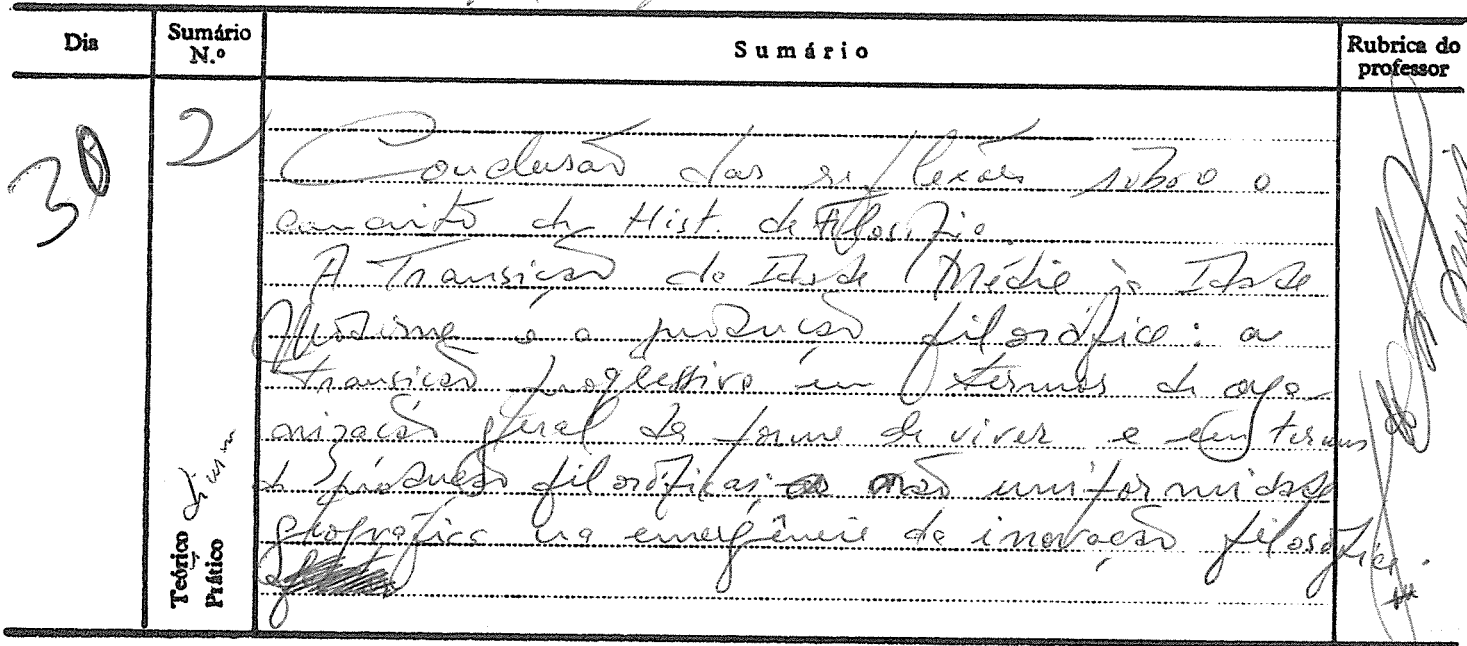 Dia
Sumário N.º
Sumário
Rubrica do professor
30
2
Conclusão das reflexões sobre o
conceito de Hist. da Filosofia.
A Transição da Idade Média à Idade
Moderna e a produção filosófica: a
transição progressiva em termos de orga
nização geral da forma de viver e em termos
de produção filosófica; a não uniformidade
geográfica na emergência da inovação filosófica.
Teórico
Prático